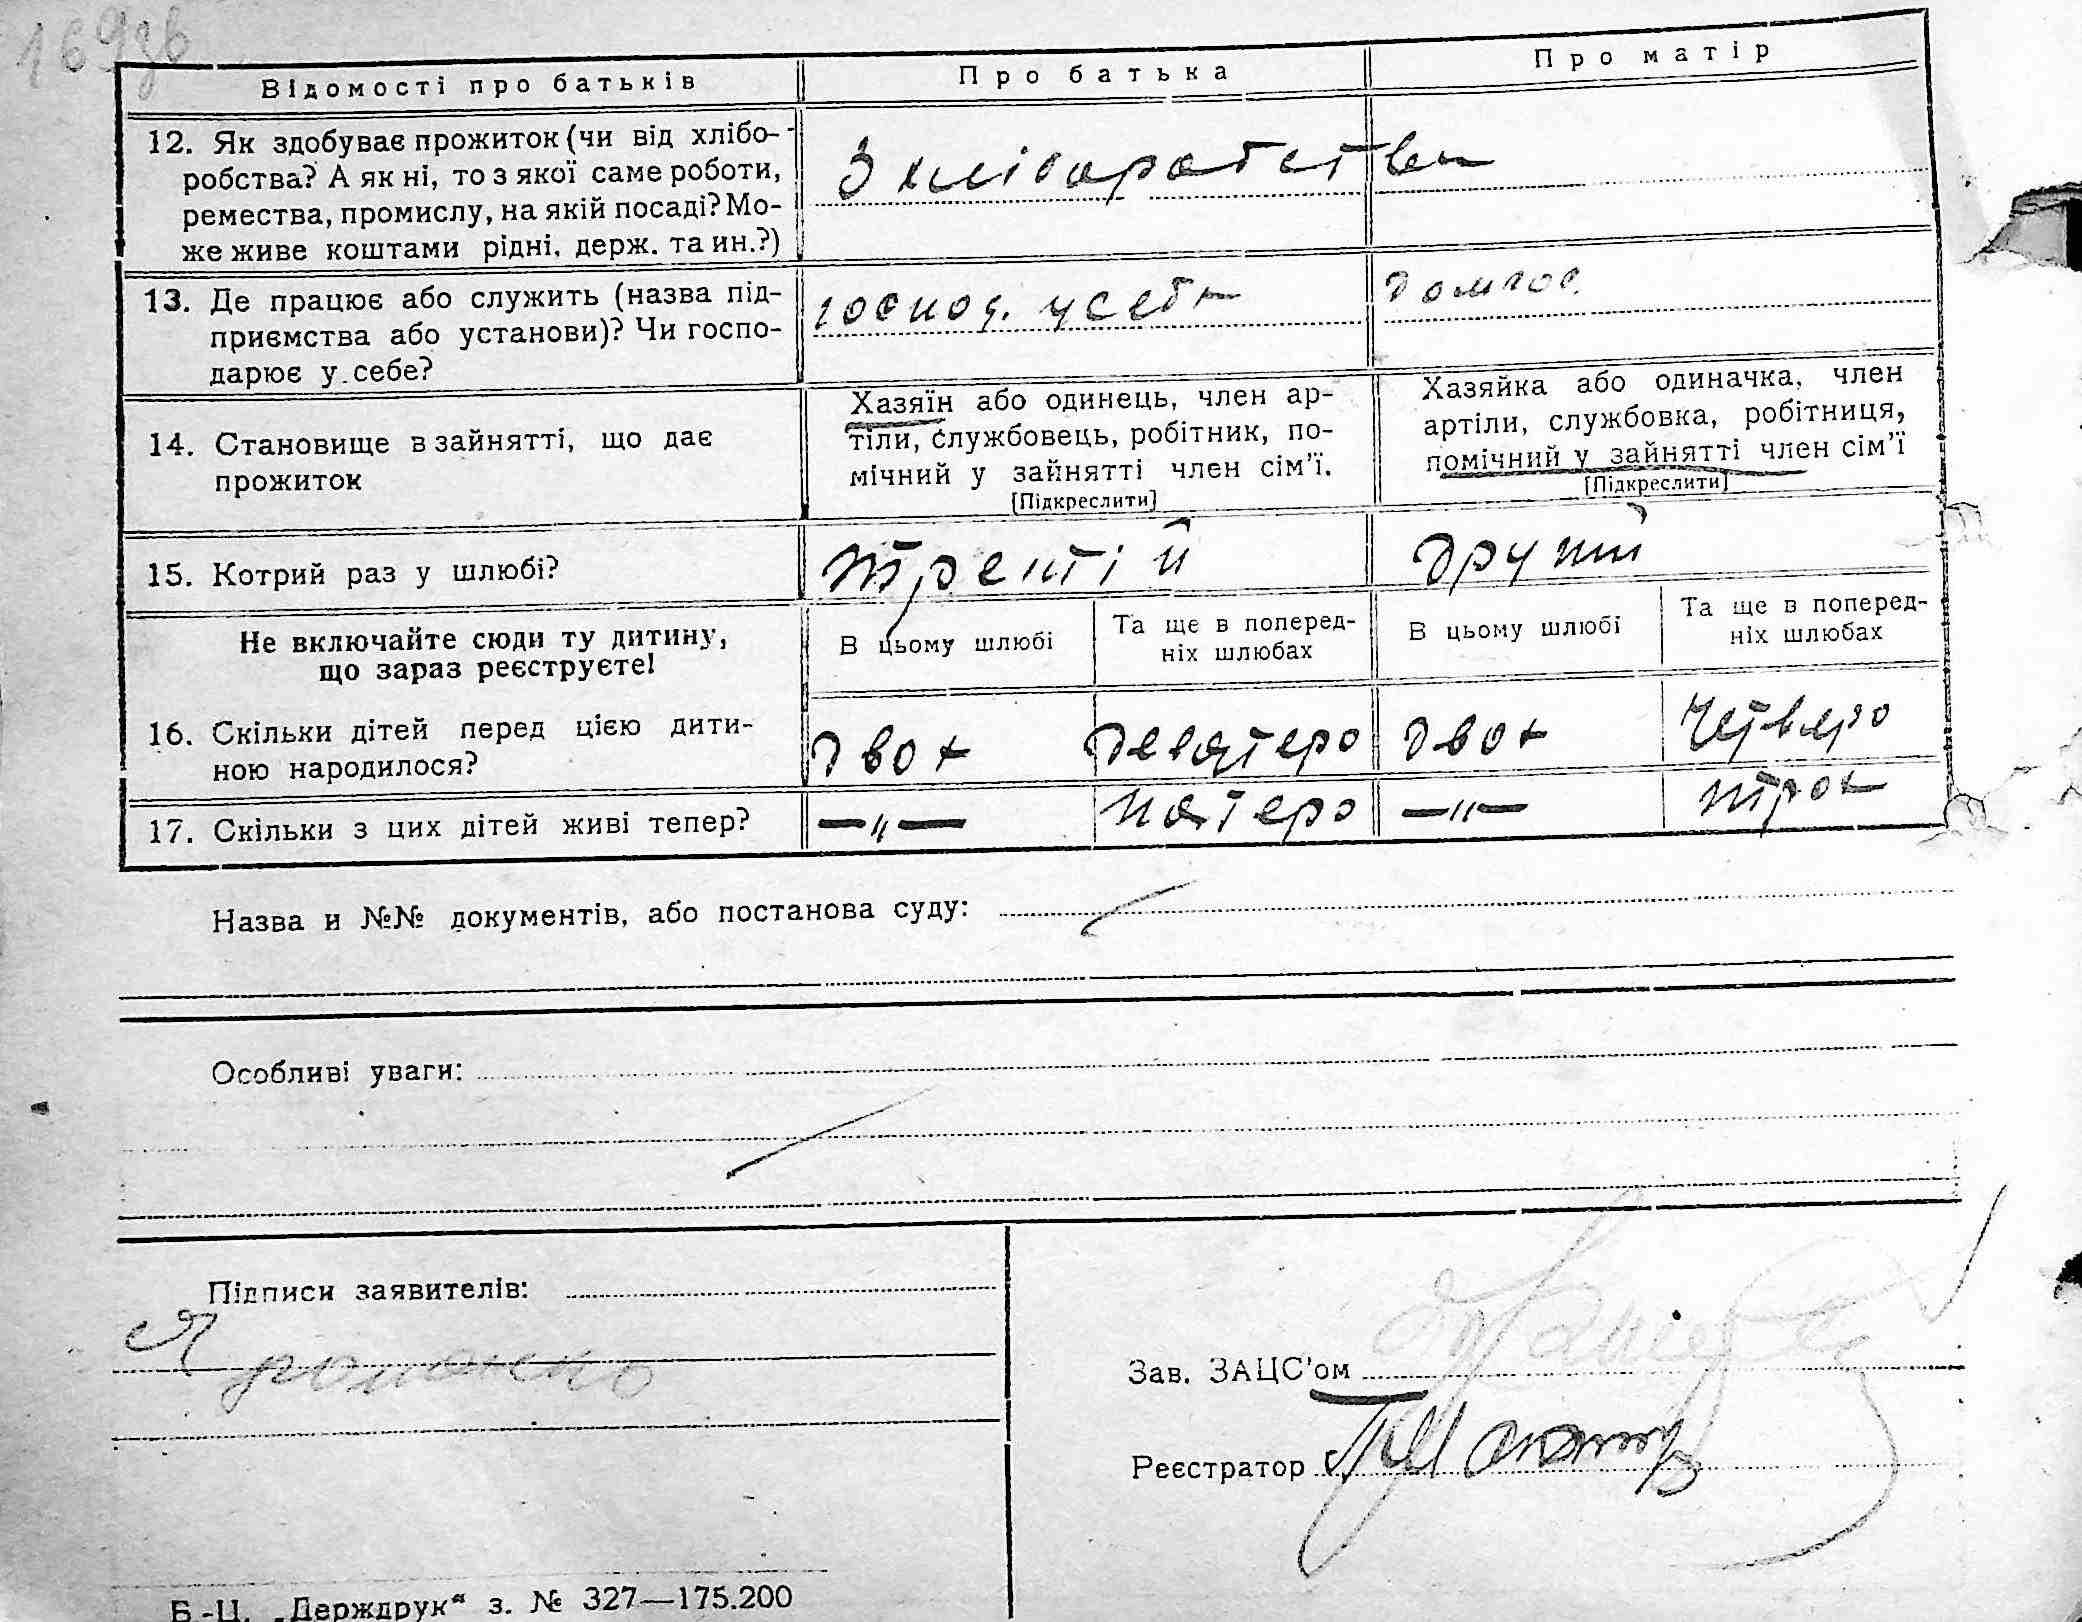 169зв
Відомості про батьків Про батька Про матір
12. Як здобуває прожиток (чи від хлібо-
робства? А як ні, то з якої саме роботи,
ремества, промислу, на якій посаді? Мо-
же живе коштами рідні, держ. та ин.?)
З хліборобства
13. Де працює або служить (назва під-
приємства або установи)? Чи госпо-
дарює у себе?
господ. у себе
домгос.
14. Становище в зайнятті, що дає
прожиток
Хазяїн або одинець, член ар-
тіли, службовець, робітник, по-
мічний у зайнятті член сім'ї.
[Підкреслити]
Хазяйка або одиначка, член
артіли, службовка, робітниця,
помічний у зайнятті член сім'ї
[Підкреслити]
15. Котрий раз у шлюбі?
третій
другий
Не включайте сюди ту дитину,
що зараз реєструєте!
В цьому шлюбі
Та ще в поперед-
ніх шлюбах
В цьому шлюбі
Та ще в поперед-
ніх шлюбах
16. Скільки дітей перед цією дити-
ною народилося?
двох девятеро двох четверо
17. Скільки з цих дітей живі тепер?
—„— пятеро —"— трох
Назва и №№ документів, або постанова суду:
Особливі уваги:
Підписи заявителів:
Зав. ЗАЦС'ом
Реєстратор
Б.-Ц. „Держдрук" з. № 327—175.200